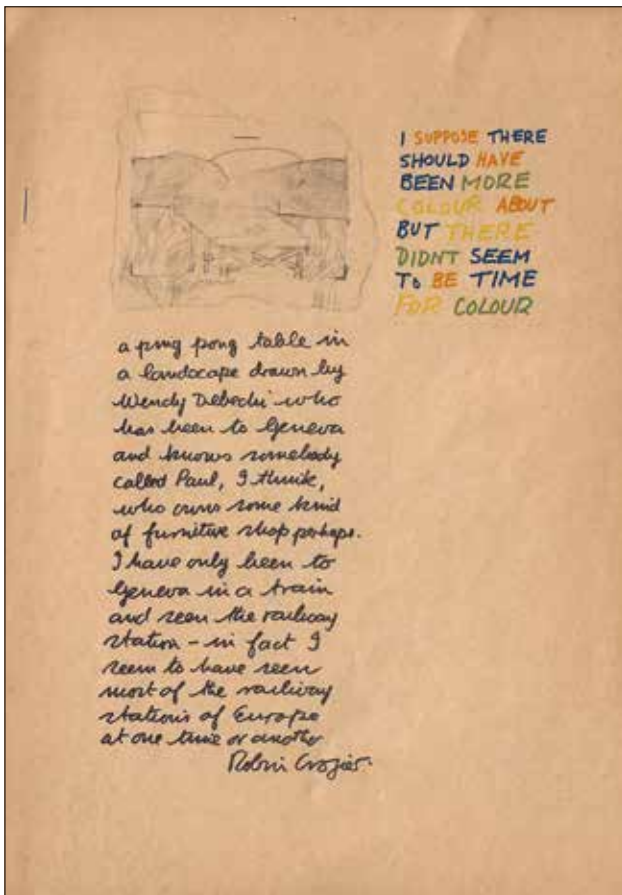 I SUPPOSE THERE
SHOULD HAVE
BEEN MORE
COLOUR ABOUT
BUT THERE
DIDNT SEEM
To BE TIME
FOR COLOUR
a ping pong table in
a landscape drawn by
Wendy who
has been to Geneva
and knows somebody
called Paul, I think,
who owns some kind
of furniture shop perhaps.
I have only been to
Geneva in a train
and seen the railway
station - in fact I
seem to have seen
most of the railway
stations of Europe
at one time or another
Robin Crozier.